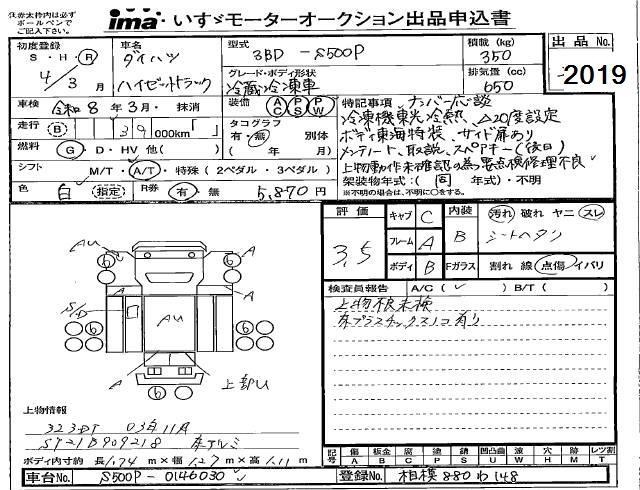 注赤太枠内は必ず
ボールペンで
ご記入下さい。
ima いすゞモーターオークション出品申込書
初度登録
S・H・R
4/3月
車名
ダイハツ
ハイゼットトラック
型式
3BD - S500P
グレード・ボディ形状
冷蔵冷凍車
積載 (kg)
350
排気量 (cc)
650
出品No.
2019
車検 令和8年3月・抹消
装備 AC PS PW
走行 B 39 000km「 」
タコグラフ
有・無 別体
( 年 月)
燃料 G・D・HV 他( )
シフト M/T・A/T・特殊 (2ペダル・3ペダル)
色 白 (指定) R券 有・無 5,870円
特記事項 ナンバー応談
冷凍機東光冷熱、△20度設定
ボディ東海特装、サイド扉あり
メンテノート、取説、スペアキー(後日)
上物動作未確認の為要点検修理不良
架装物年式:(同 年式)・不明
※不明の場合は、不明に○をする。
評価
3.5
キャブ C
フレーム A
ボディ B
内装 B
汚れ 破れ ヤニ スレ
シートヘタリ
Fガラス 割れ 線 点傷 イバリ
検査員報告 A/C( ✓ ) B/T( )
上物根未検
床プラスチックスノコ有り
AU
A
A
A
S/D
AU
A
上部U
6
6
6
6
6
6
上物情報
323DT 03年11月
ST21B909218 床アルミ
ボディ内寸約 長1.74m×幅1.27m×高1.11m
車台No. S500P-0146030
記号
傷 A
板金 B
腐 C
塗 P
錆 S
凹凸曲 U
波 W
亀 H
汚 M
レツ割 T
登録No. 相模 880 わ 148